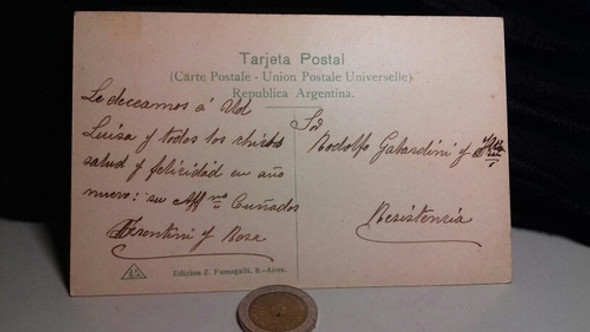 Tarjeta Postal
(Carte Postale - Union Postale Universelle)
Republica Argentina.
Le deceamos á Vd
Luisa y todos los chicos
salud y felicidad en año
nuevo: su Aff mo Cuñados
Fiorentini y Rosa
Sor
Rodolfo Galardini y
Resistencia
Edicion Z. Fumagalli, B.-Aires.